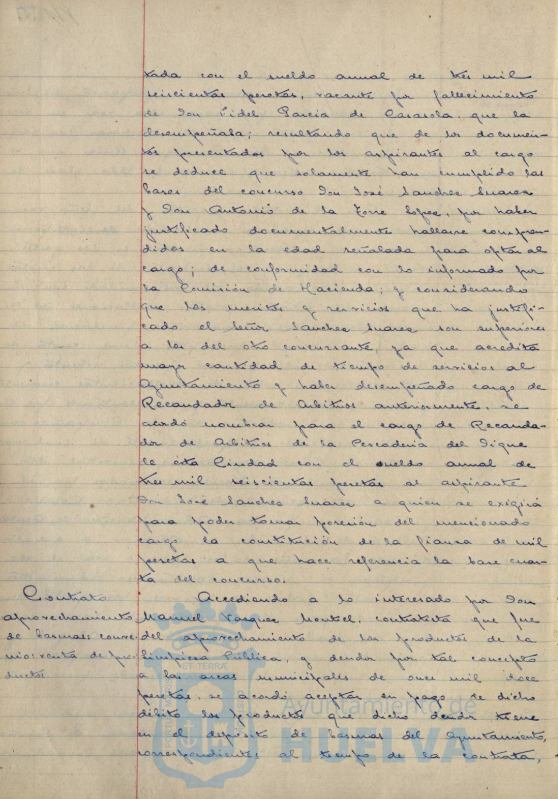 tada con el sueldo anual de tres mil
seiscientas pesetas, vacante por fallecimiento
de Don Fidel García de Carasola, que la
desempeñaba; resultando que de los documen-
tos presentados por los aspirantes al cargo
se deduce que solamente han cumplido las
bases del concurso Don José Sanchez Suarez
y Don Antonio de la Torre Lopez, por haber
justificado documentalmente hallarse compren-
didos en la edad señalada para optar al
cargo; de conformidad con lo informado por
la Comisión de Hacienda; y considerando
que los meritos y servicios que ha justifi-
cado el Señor Sanchez Suarez son superiores
a los del otro concursante, ya que acredita
mayor cantidad de tiempo de servicios al
Ayuntamiento y haber desempeñado cargo de
Recaudador de Arbitrios anteriormente, se
acordó nombrar para el cargo de Recauda-
dor de Arbitrios de la Pescaderia del Dique
de ésta Ciudad con el sueldo anual de
tres mil seiscientas pesetas al aspirante
Don José Sanchez Suarez a quien se exigirá
para poder tomar posesión del mencionado
cargo la constitución de la fianza de mil
pesetas a que hace referencia la base cuar-
ta del concurso.
Contrato
aprovechamiento
de basuras: conve-
nio: venta de pro-
ductos
Accediendo a lo interesado por Don
Manuel Vazquez Montel, contratista que fue
del aprovechamiento de los productos de la
Limpieza Pública, y deudor por tal concepto
a las arcas municipales de once mil doce
pesetas, se acordó aceptar en pago de dicho
débito los productos que dicho deudor tiene
en el depósito de basuras del Ayuntamiento,
correspondientes al tiempo de la contrata,
Ayuntamiento de
HUELVA